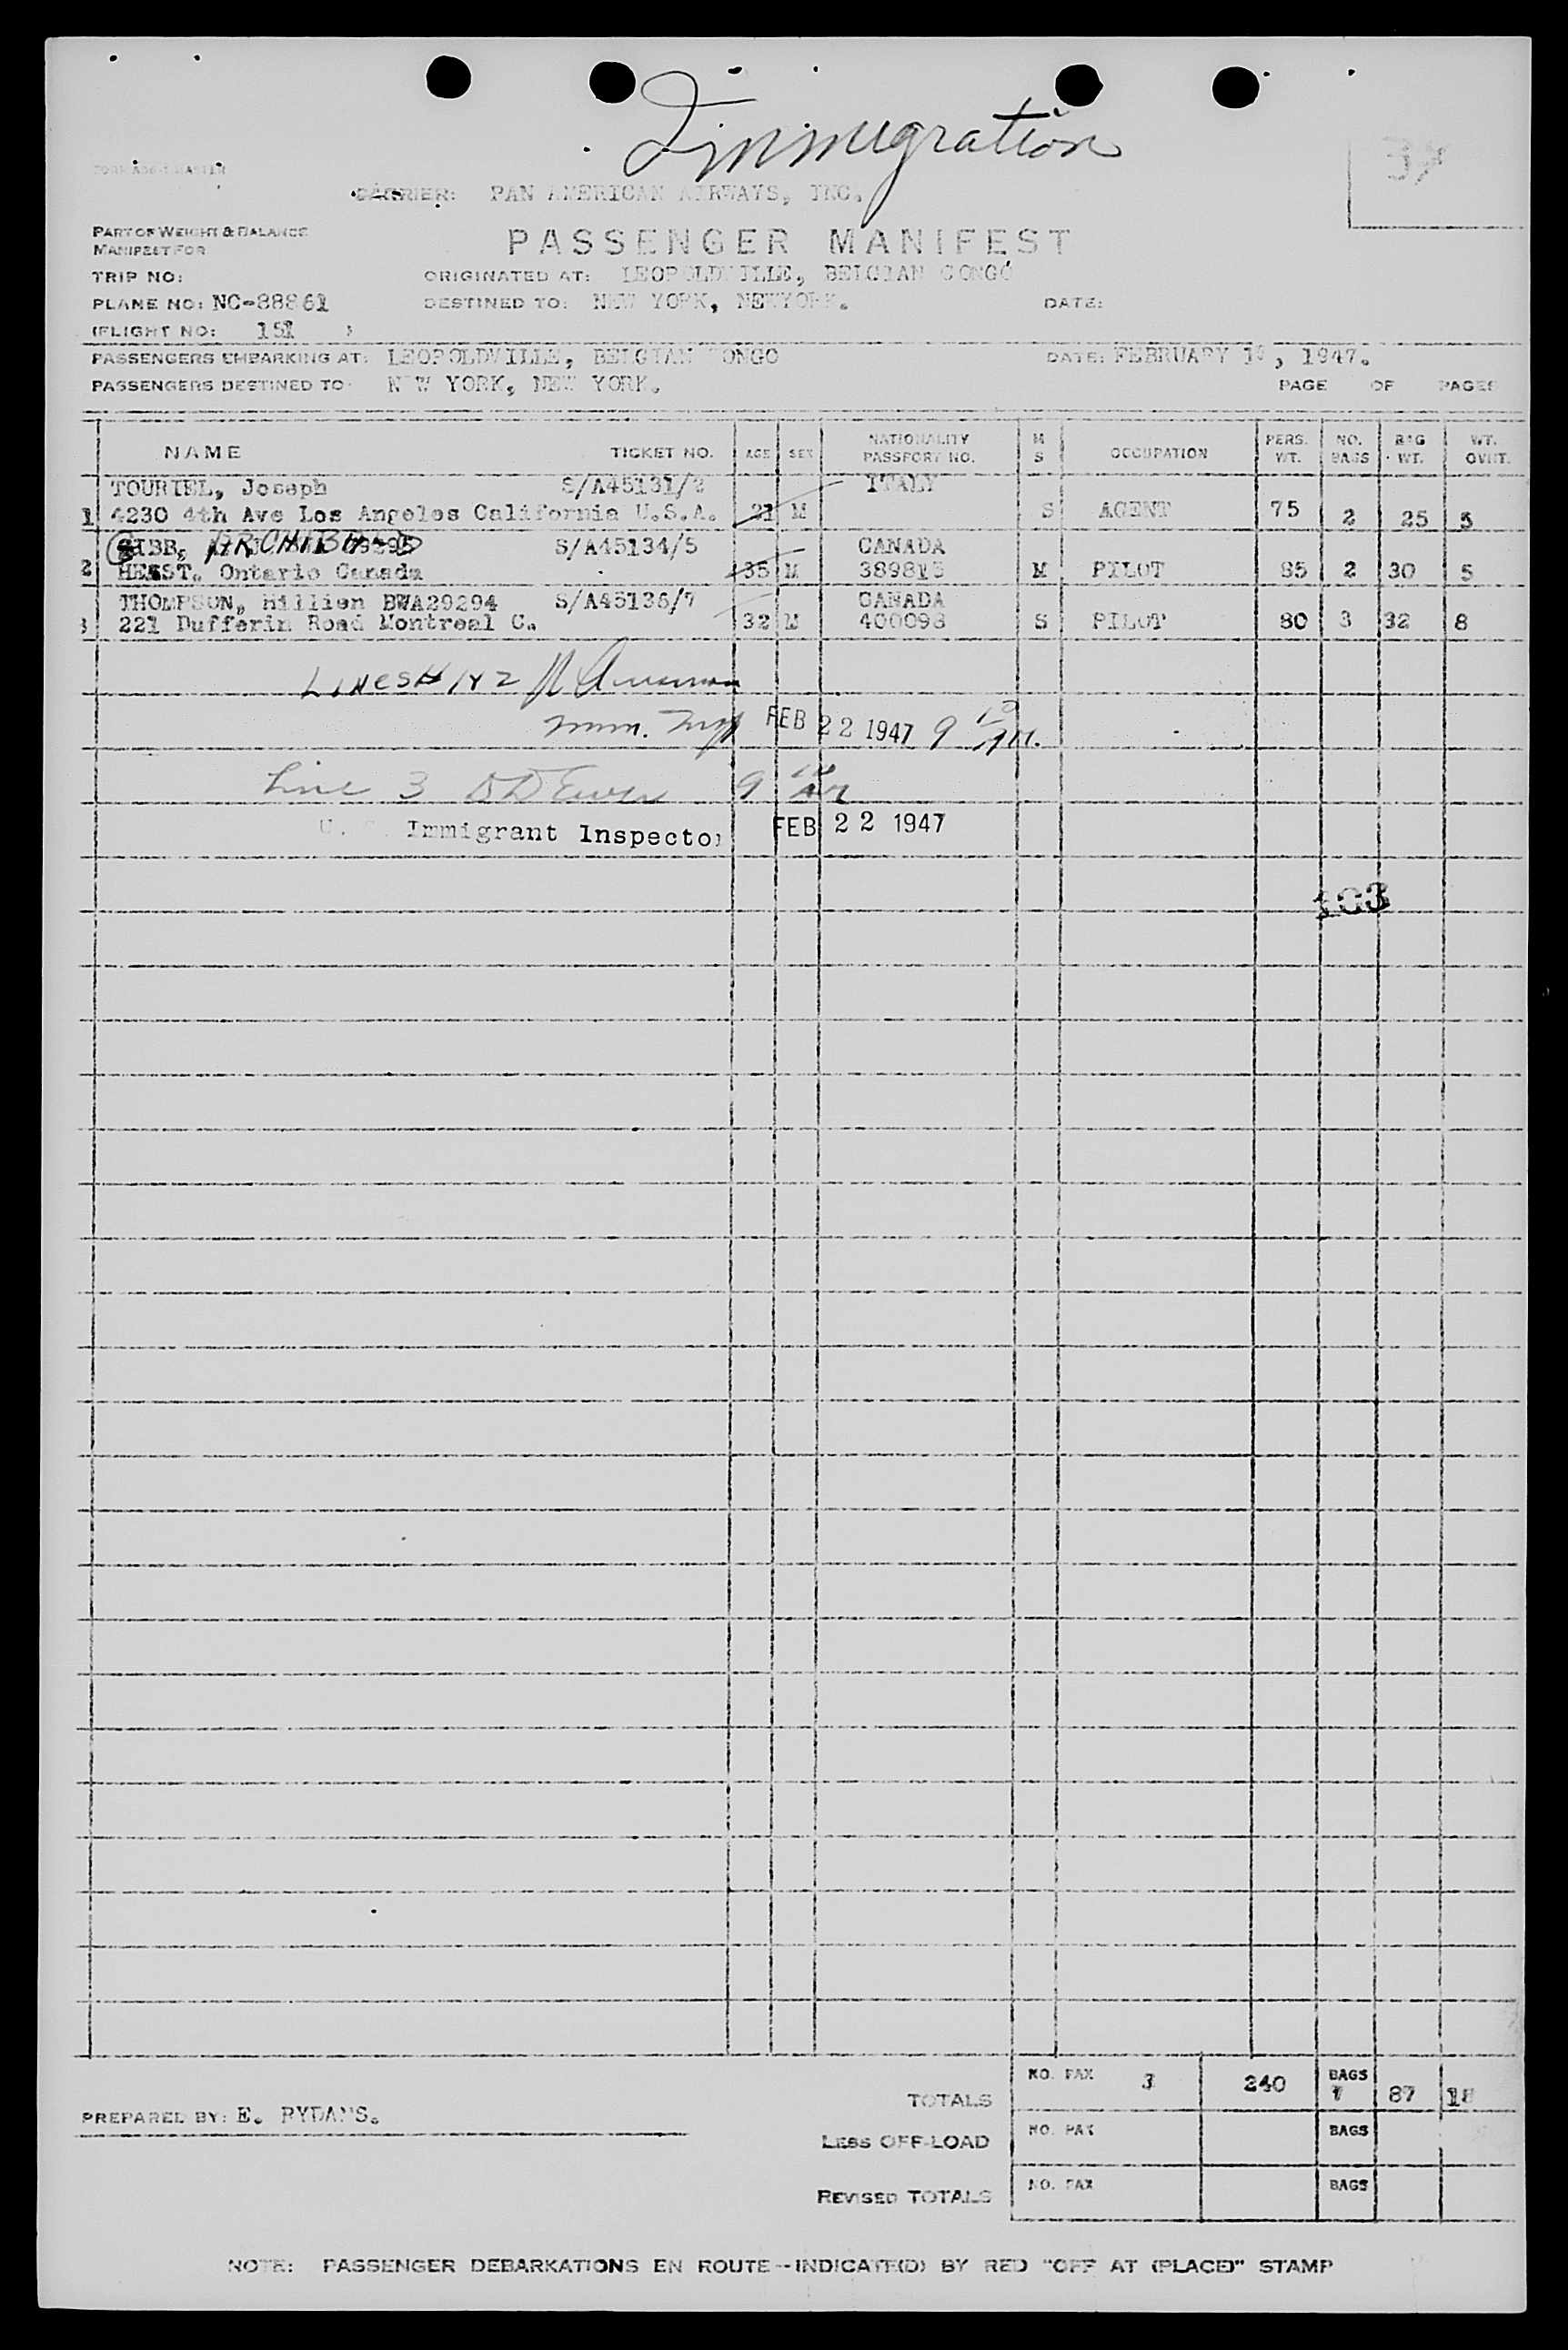 Immigration
37
CARRIER: PAN AMERICAN AIRWAYS, INC.
PART OF WEIGHT & BALANCE
MANIFEST FOR
PASSENGER MANIFEST
TRIP NO:
ORIGINATED AT: LEOPOLDVILLE, BELGIAN CONGO
PLANE NO: NC-88861
DESTINED TO: NEW YORK, NEWYORK.
DATE:
(FLIGHT NO: 151 )
PASSENGERS EMBARKING AT: LEOPOLDVILLE, BELGIAN CONGO
DATE: FEBRUARY , 1947.
PASSENGERS DESTINED TO NEW YORK, NEW YORK.
PAGE OF PAGES
NAME TICKET NO. AGE SEX NATIONALITY PASSPORT NO. M S OCCUPATION PERS. WT. NO. BAGS BAG WT. WT. OVHT.
TOURIEL, Joseph S/A45131/2 ITALY
1 4230 4th Ave Los Angeles California U.S.A. 21 M S AGENT 75 2 25 5
GIBB, ARCHIBALD S/A45134/5 CANADA
2 HEARST. Ontario Canada 35 M 389815 M PILOT 85 2 30 5
THOMPSON, Hillien BWA29294 S/A45136/7 CANADA
3 221 Dufferin Road Montreal C. 32 M 400098 S PILOT 80 3 32 8
LINES# 1 & 2
Imm. Insp FEB 22 1947 9 10 AM.
Line 3 9 10 AM
U. S. Immigrant Inspector FEB 22 1947
103
TOTALS NO. PAX 3 240 BAGS 7 87 18
PREPARED BY: E. RYDAMS.
LESS OFF-LOAD NO. PAX BAGS
REVISED TOTALS NO. PAX BAGS
NOTE: PASSENGER DEBARKATIONS EN ROUTE--INDICATE(D) BY RED "OFF AT (PLACE)" STAMP